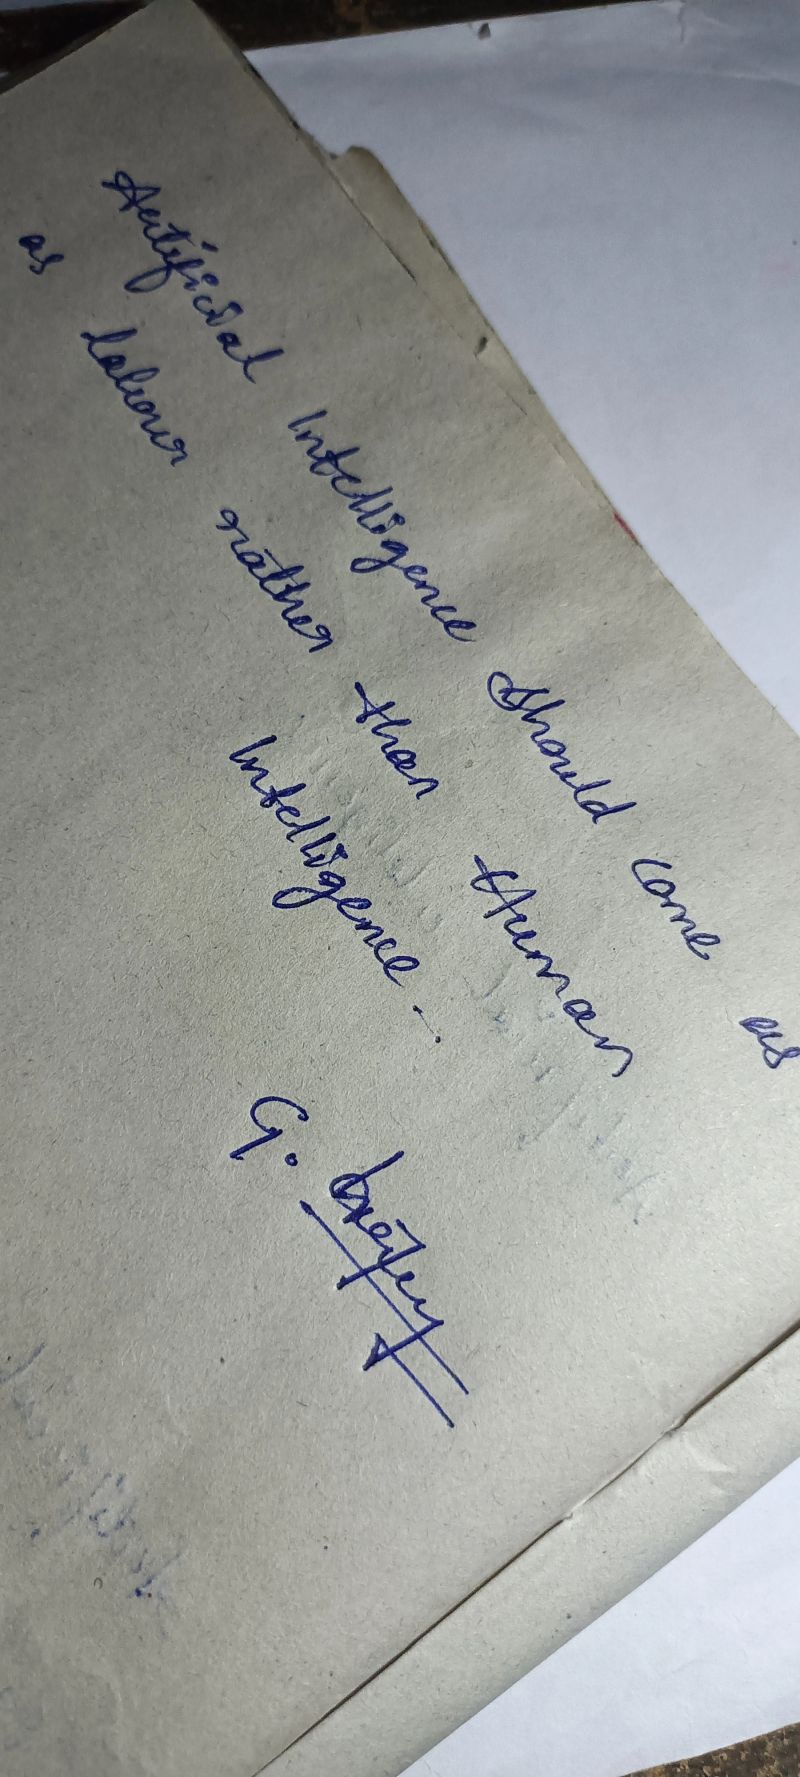 Artificial Intelligence should come as
as labour rather than Human
Intelligence.
G.